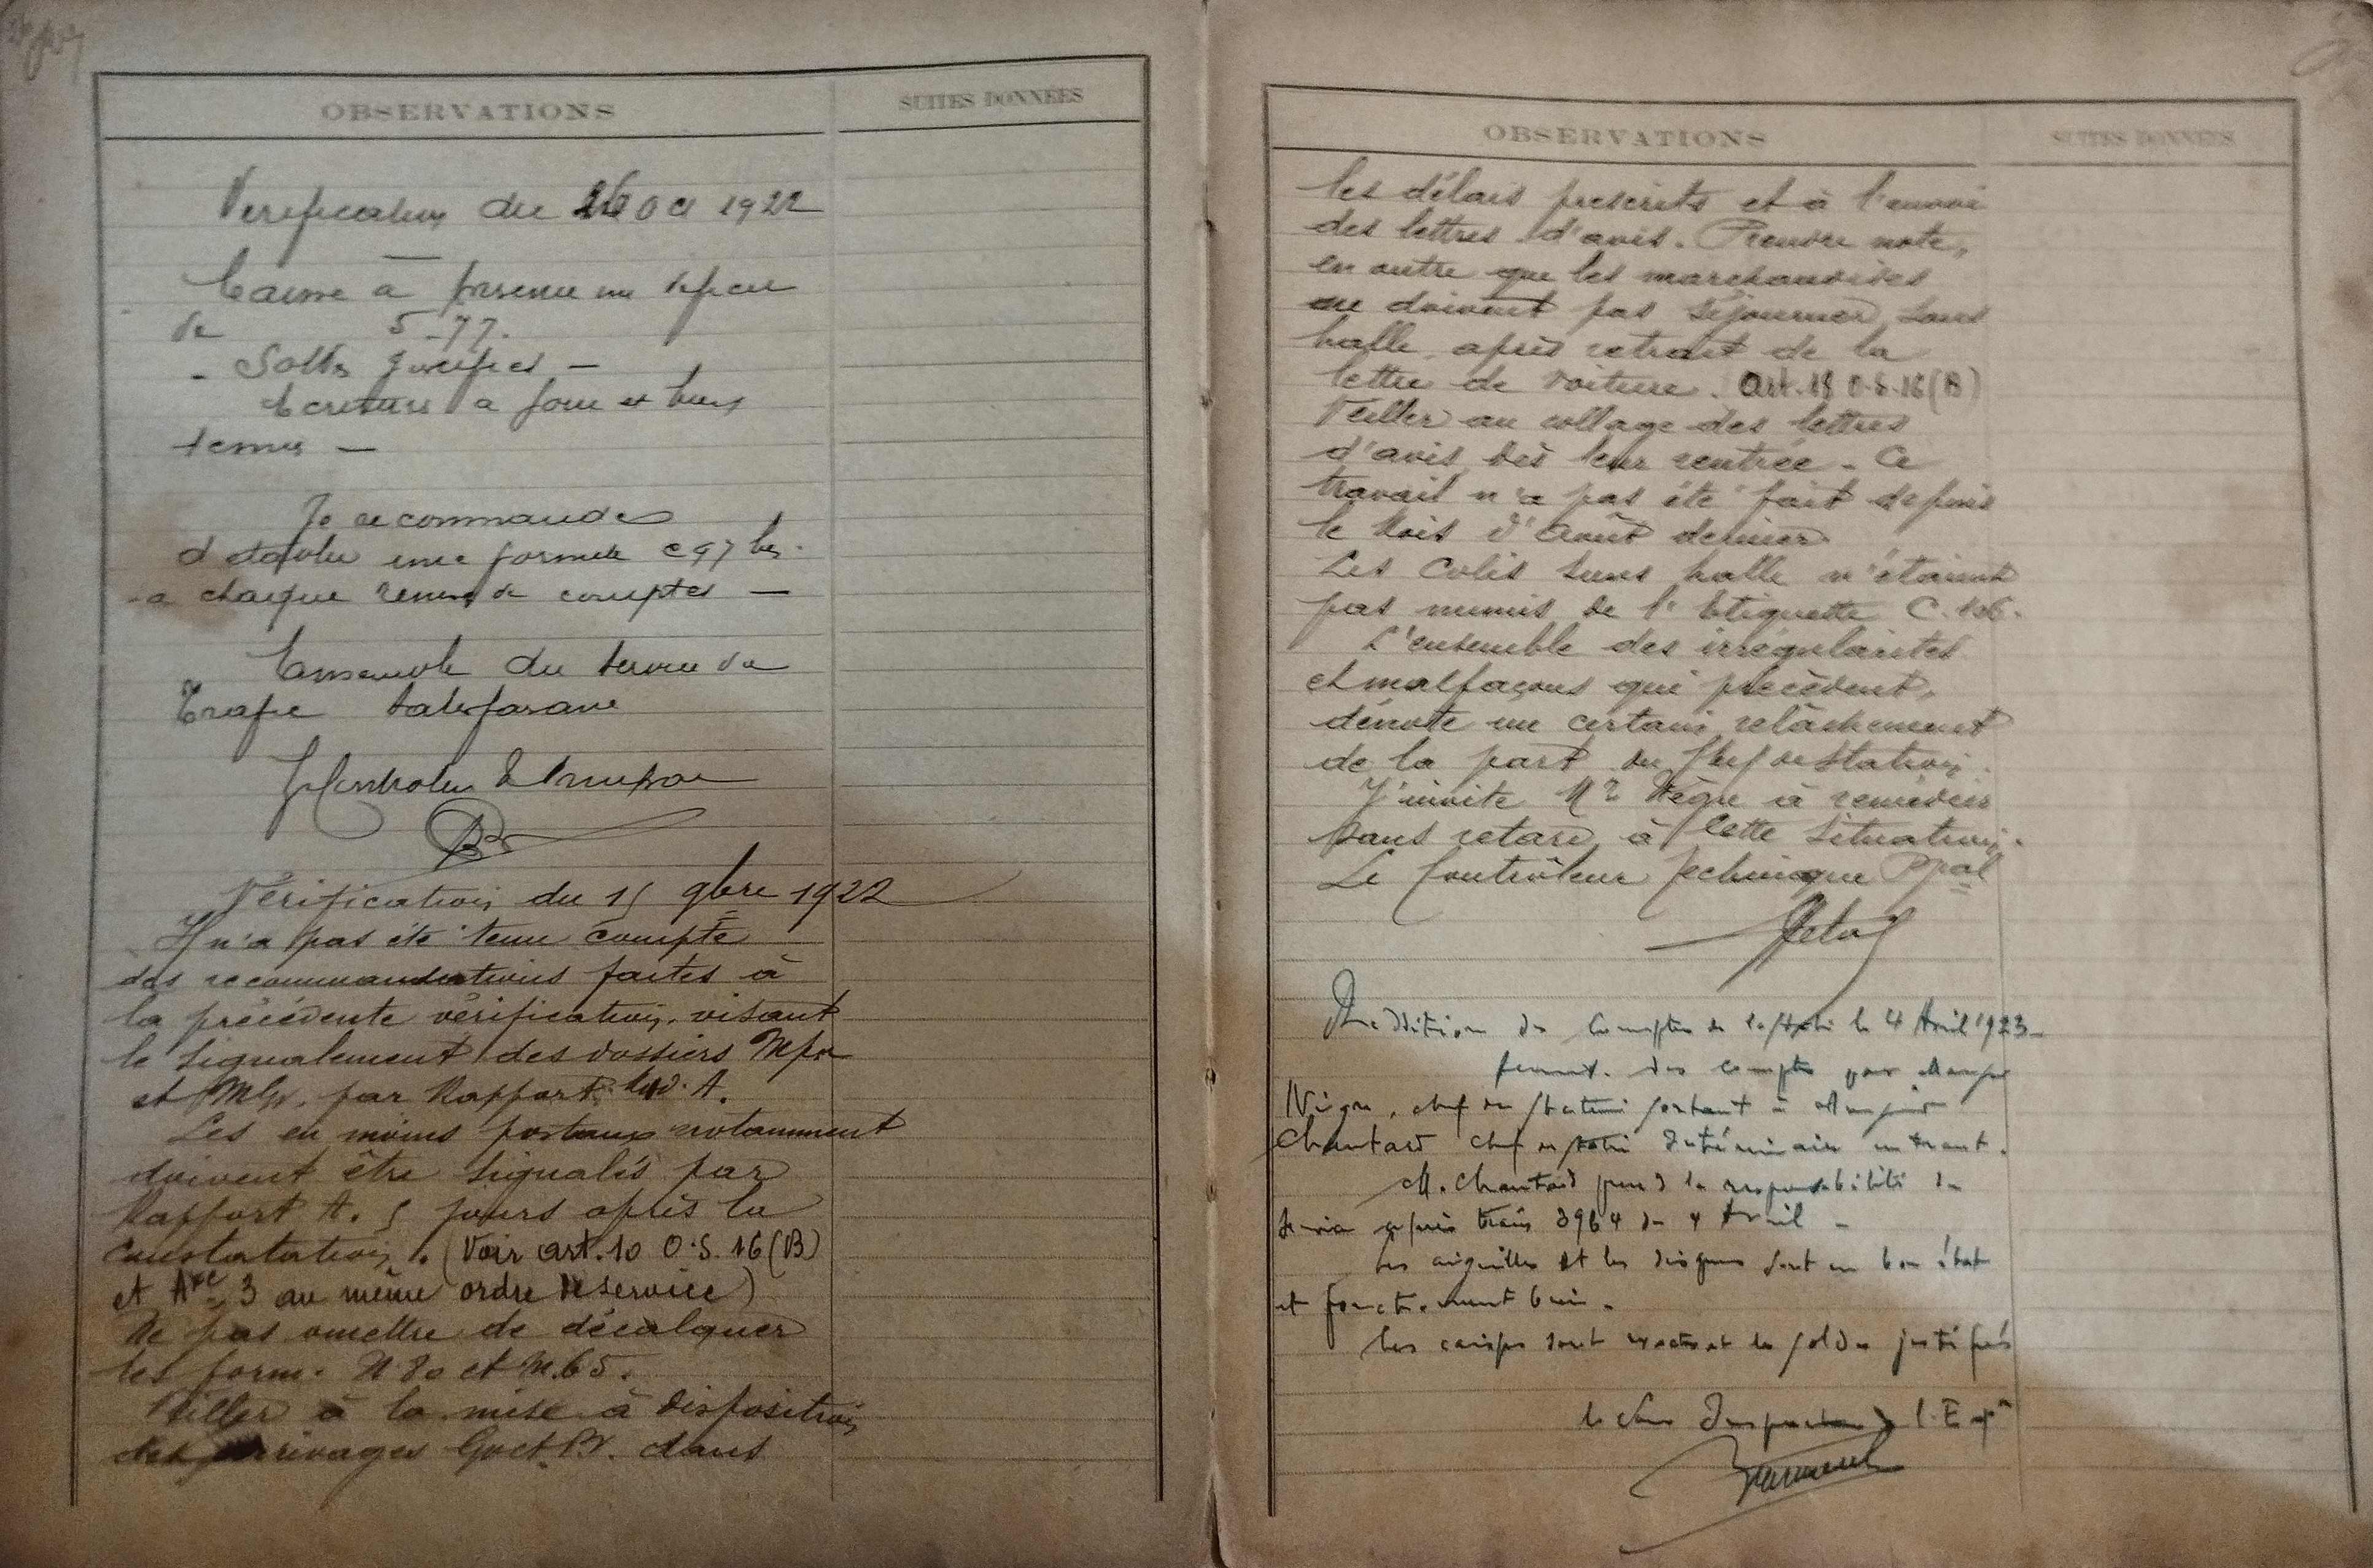 OBSERVATIONS
SUITES DONNÉES
Verification du 26 Oct 1922
Caisse a présenté un déficit
de 5-77.
- Soldes justifiés -
Ecritures a jour et bien
tenues -
Je recommande
d'établir une formule C 97 bis.
a chaque remise de comptes -
Ensemble du service du
Trafic satisfaisant
Le Controleur
Vérification du 15 9bre 1922
Il n'a pas été tenu compte
des recommandations faites à
la précédente vérification, visant
le signalement des dossiers Mpn
et par Rapport A.
Les en moins postaux notamment
doivent être signalés par
Rapport A. 5 jours après la
constatation. (Voir art. 10 O.S. 16 (B)
et Axe 3 au même ordre de service)
Ne pas omettre de décalquer
les form. N 80 et M.65.
Veiller à la mise à disposition
des arrivages Gv et Pv. dans
OBSERVATIONS
SUITES DONNÉES
les délais prescrits et à l'envoi
des lettres d'avis. Prendre note,
en outre que les marchandises
ne doivent pas séjourner sous
halle, après retrait de la
lettre de voiture. Art. 18 O.S. 16 (B)
Veiller au collage des lettres
d'avis dès leur rentrée. Ce
travail n'a pas été fait depuis
le Mois d'Août dernier.
Les Colis sous halle n'étaient
pas munis de l'Etiquette C.
L'ensemble des irrégularités
et malfaçons qui précèdent,
dénote un certain relâchement
de la part du Chef de Station.
J'invite Mr Nègre à remédier
sans retard à cette situation.
Le Contrôleur Technique Ppal
Reddition des Comptes de la station le 4 Avril 1923
des comptes par Monsieur
Nègre, chef de station sortant à Monsieur
Chautard chef de station Intérimaire entrant.
M. Chautard prend la responsabilité du
service après train 3964 du 4 Avril -
Les aiguilles et les disques sont en bon état
et fonctionnent bien.
Les caisses sont exactes et les soldes justifiés
le Sous Inspecteur de l'Expon